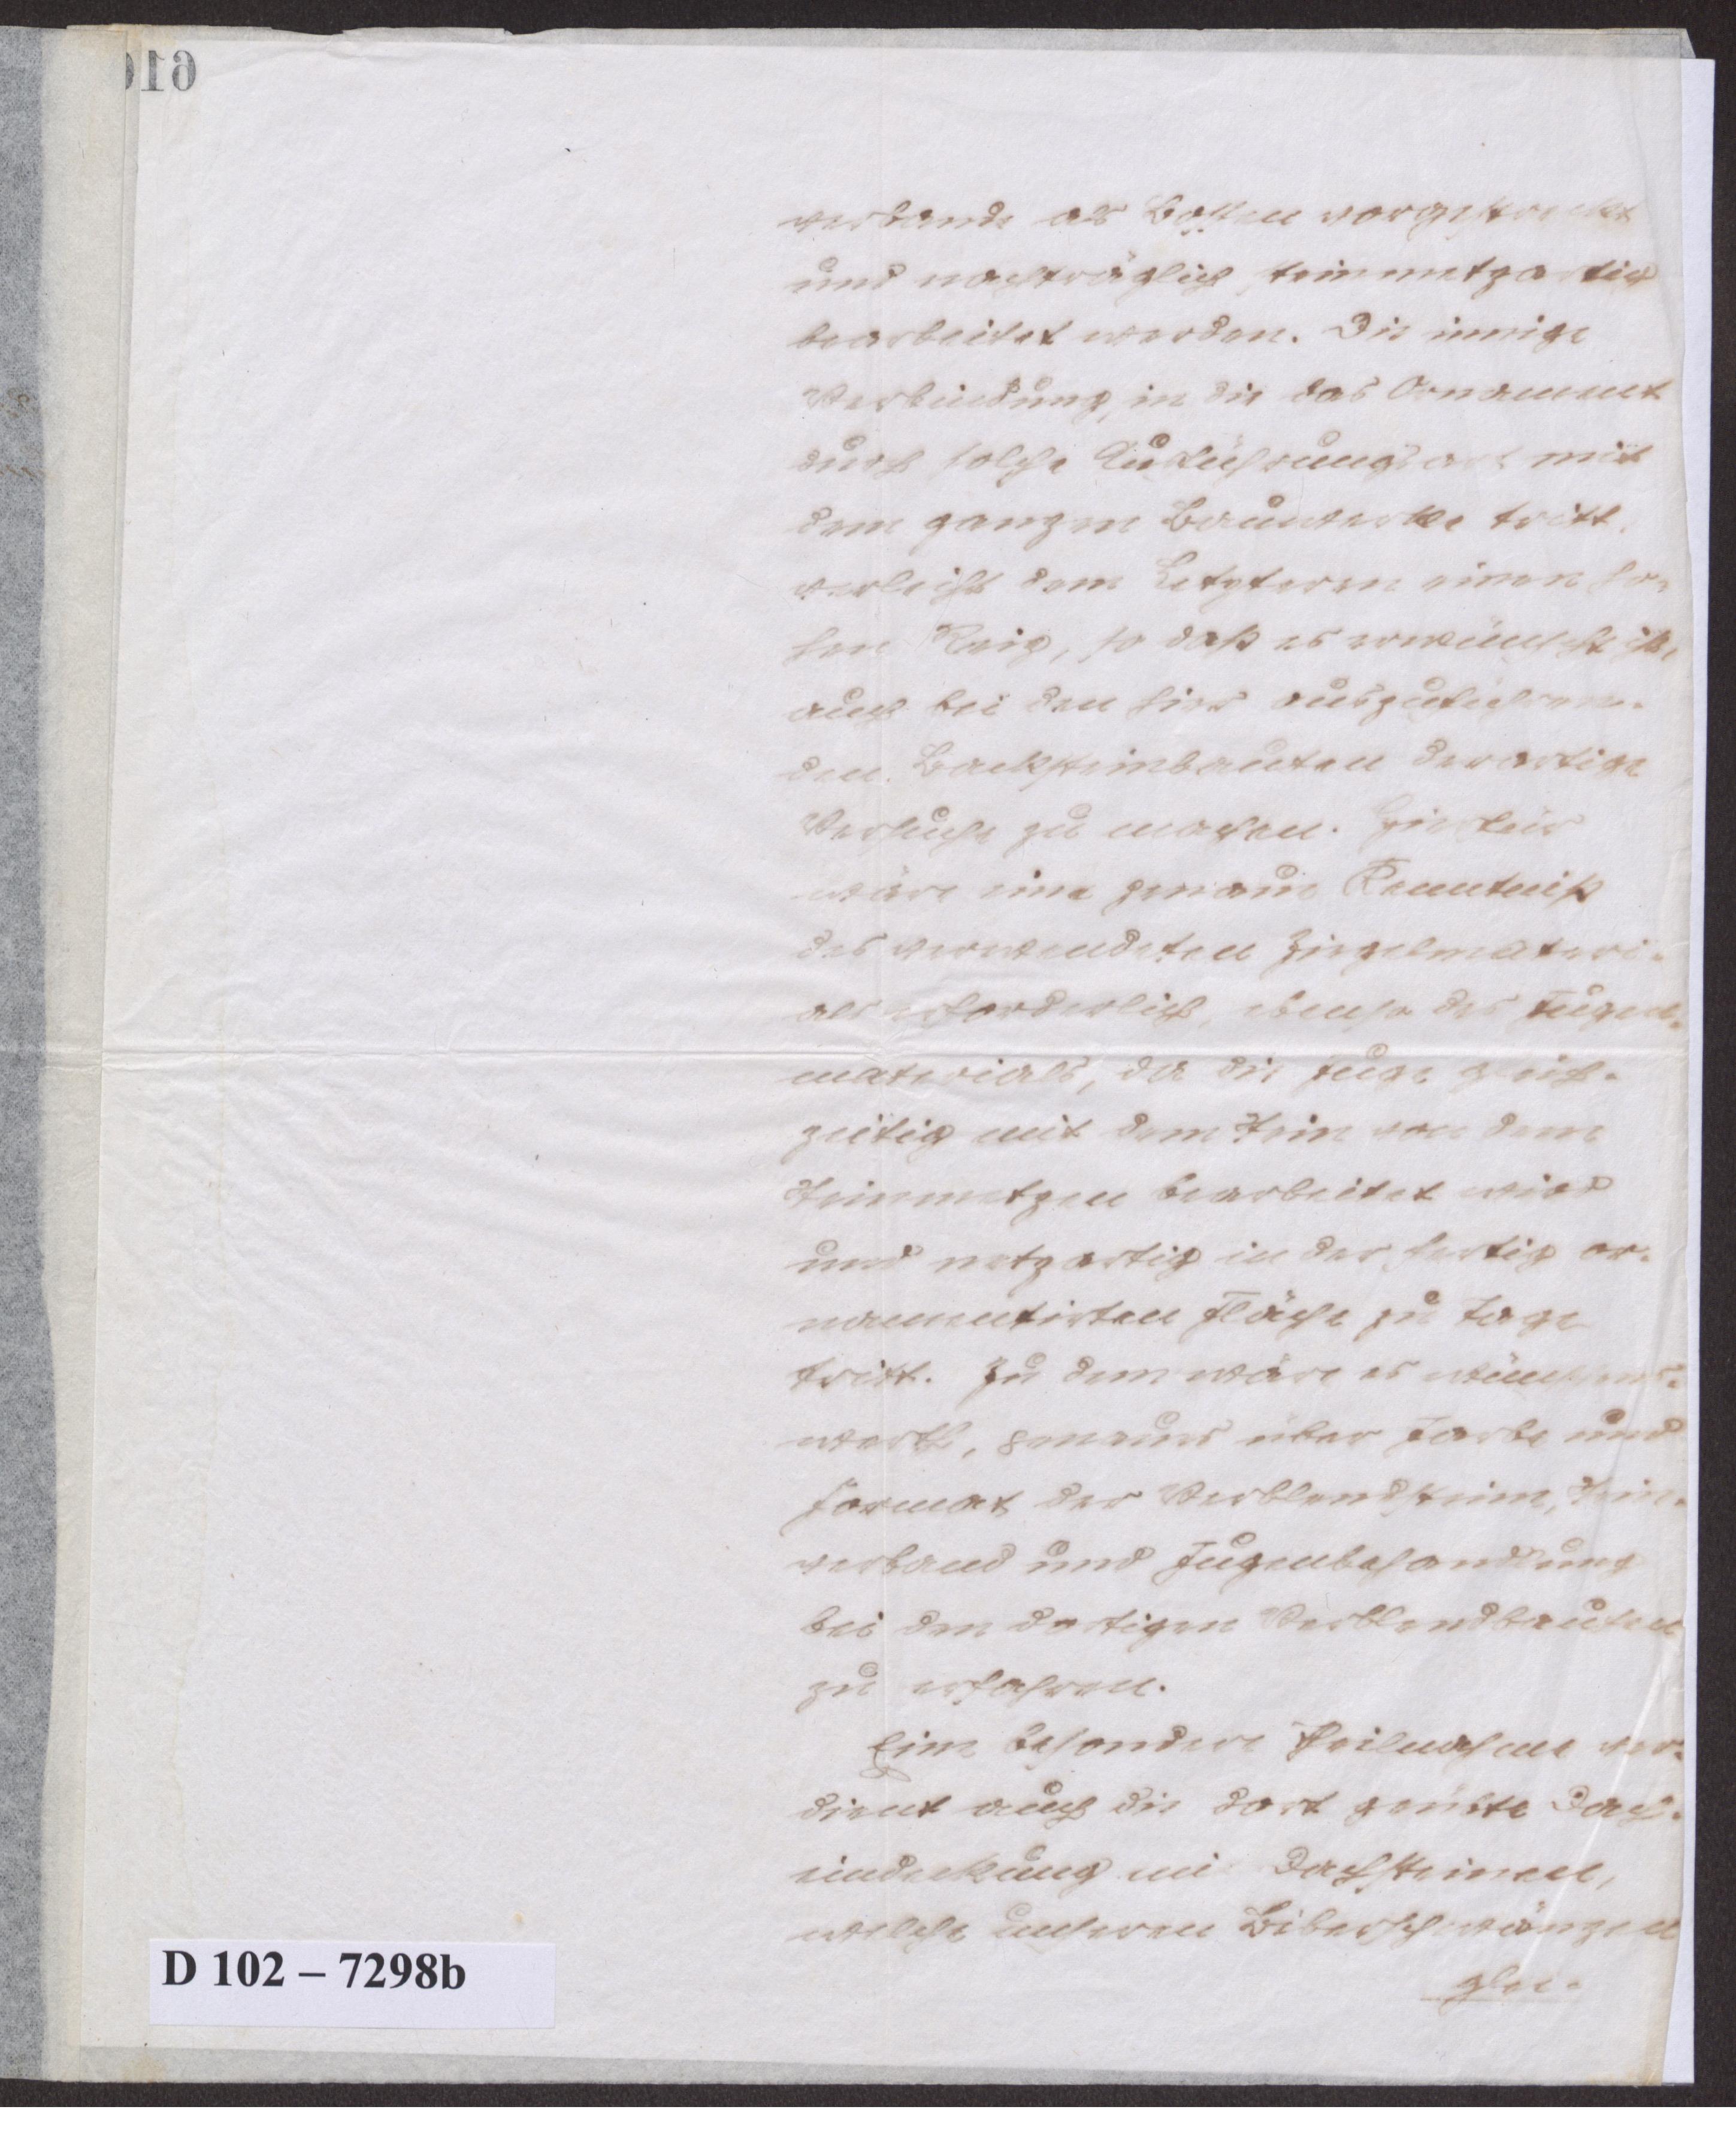 610
verbande als Bossen vorgestreckt
und nachträglich steinmetzartig
bearbeitet werden. Die innige
Verbindung, in die das Ornament
durch solche Ausführungsart mit
dem ganzen Bauwerke tritt,
verleiht dem Letzteren einen ho-
hen Reiz, so daß es erwünscht ist,
auch bei den hier auszuführen-
den Backsteinbauten derartige
Versuche zu machen. Hierfür
wäre eine genaue Kenntniß
des verwendeten Ziegelmateri-
als erforderlich, ebenso des Fugen-
materials, da die Fuge gleich-
zeitig mit dem Stein von dem
Steinmetzen bearbeitet wird
und netzartig in der fertig or-
namentirten Fläche zu Tage
tritt. Zu dem wäre es wünschens-
werth, genaues über Farbe und
Format der Verblendsteine, Stein-
verband und Fugenbehandlung
bei den dortigen Verblendbauten
zu erfahren.
Eine besondere Theilnahme ver-
dient auch die dort geübte Dach-
eindeckung mit Dachsteinen,
welche unseren Biberschwänzen
glei-
D 102 – 7298b